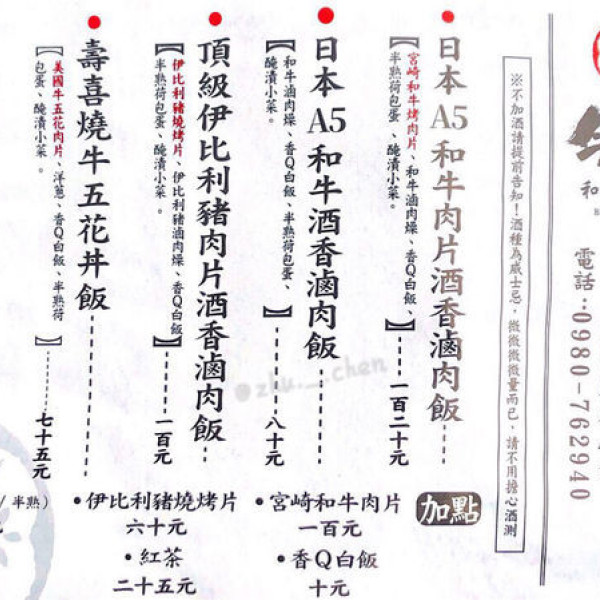 和
電話：0980-762940
※不加酒請提前告知！酒種為威士忌，微微微微量而已，請不用擔心酒測
日本A5和牛肉片酒香滷肉飯
【宮崎和牛烤肉片、和牛滷肉燥、香Q白飯、
半熟荷包蛋、醃漬小菜。】
一百二十元
日本A5和牛酒香滷肉飯
【和牛滷肉燥、香Q白飯、半熟荷包蛋、
醃漬小菜。】
八十元
頂級伊比利豬肉片酒香滷肉飯
【伊比利豬燒烤片、伊比利豬滷肉燥、香Q白飯、
半熟荷包蛋、醃漬小菜。】
一百元
壽喜燒牛五花丼飯
【美國牛五花肉片、洋蔥、香Q白飯、半熟荷
包蛋、醃漬小菜。】
七十五元
加點
•宮崎和牛肉片
一百元
•香Q白飯
十元
•伊比利豬燒烤片
六十元
•紅茶
二十五元
/半熟)
@zhu.__.chen